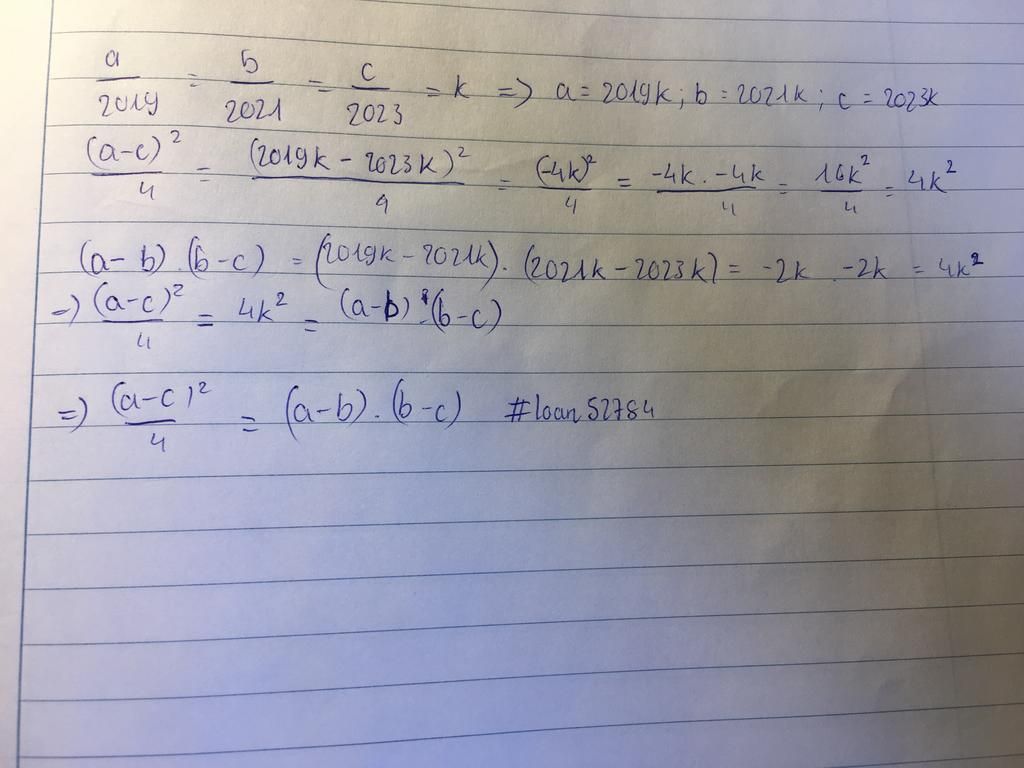 a/2019 = b/2021 = c/2023 = k => a = 2019k ; b = 2021k ; c = 2023k
(a-c)²/4 = (2019k - 2023k)²/4 = (-4k)²/4 = -4k . -4k/4 = 16k²/4 = 4k²
(a-b).(b-c) = (2019k - 2021k).(2021k - 2023k) = -2k . -2k = 4k²
=> (a-c)²/4 = 4k² = (a-b).(b-c)
=> (a-c)²/4 = (a-b).(b-c) #loan52784